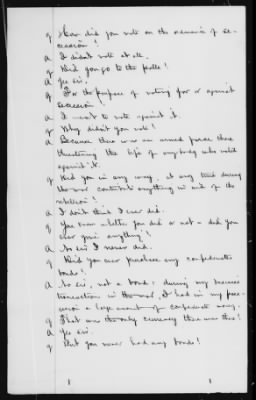 q How did you vote on the ordinance of se-
cession?
a I didn't vote at all.
q Did you go to the polls?
a Yes sir.
q For the purpose of voting for or against
secession
a I went to vote against it.
q Why didn't you vote?
a Because there was an armed force there
threatening the life of anybody who voted
against it.
q Did you in any way, at any time during
the war contribute anything in aid of the
rebellion?
a I don't think I ever did.
q You know whether you did or not - did you
ever give anything?
a No sir I never did.
q Did you ever purchase any confederate
bonds?
a No sir, not a bond; during my business
transactions in the war, I had in my poss-
ession a large amount of confederate money.
q That was the only currency there was then?
a Yes sir.
q But you never had any bonds?